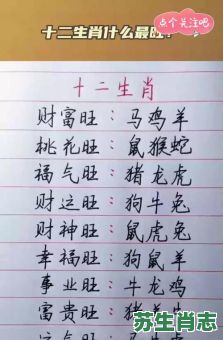 点个关注吧
十二生肖什么最旺?
十二生肖
财富旺：马鸡羊
桃花旺：鼠猴蛇
福气旺：猪龙虎
财运旺：狗牛兔
财神旺：鼠虎兔
幸福旺：狗鼠羊
事业旺：牛龙鸡
富贵旺：猪
苏生肖志